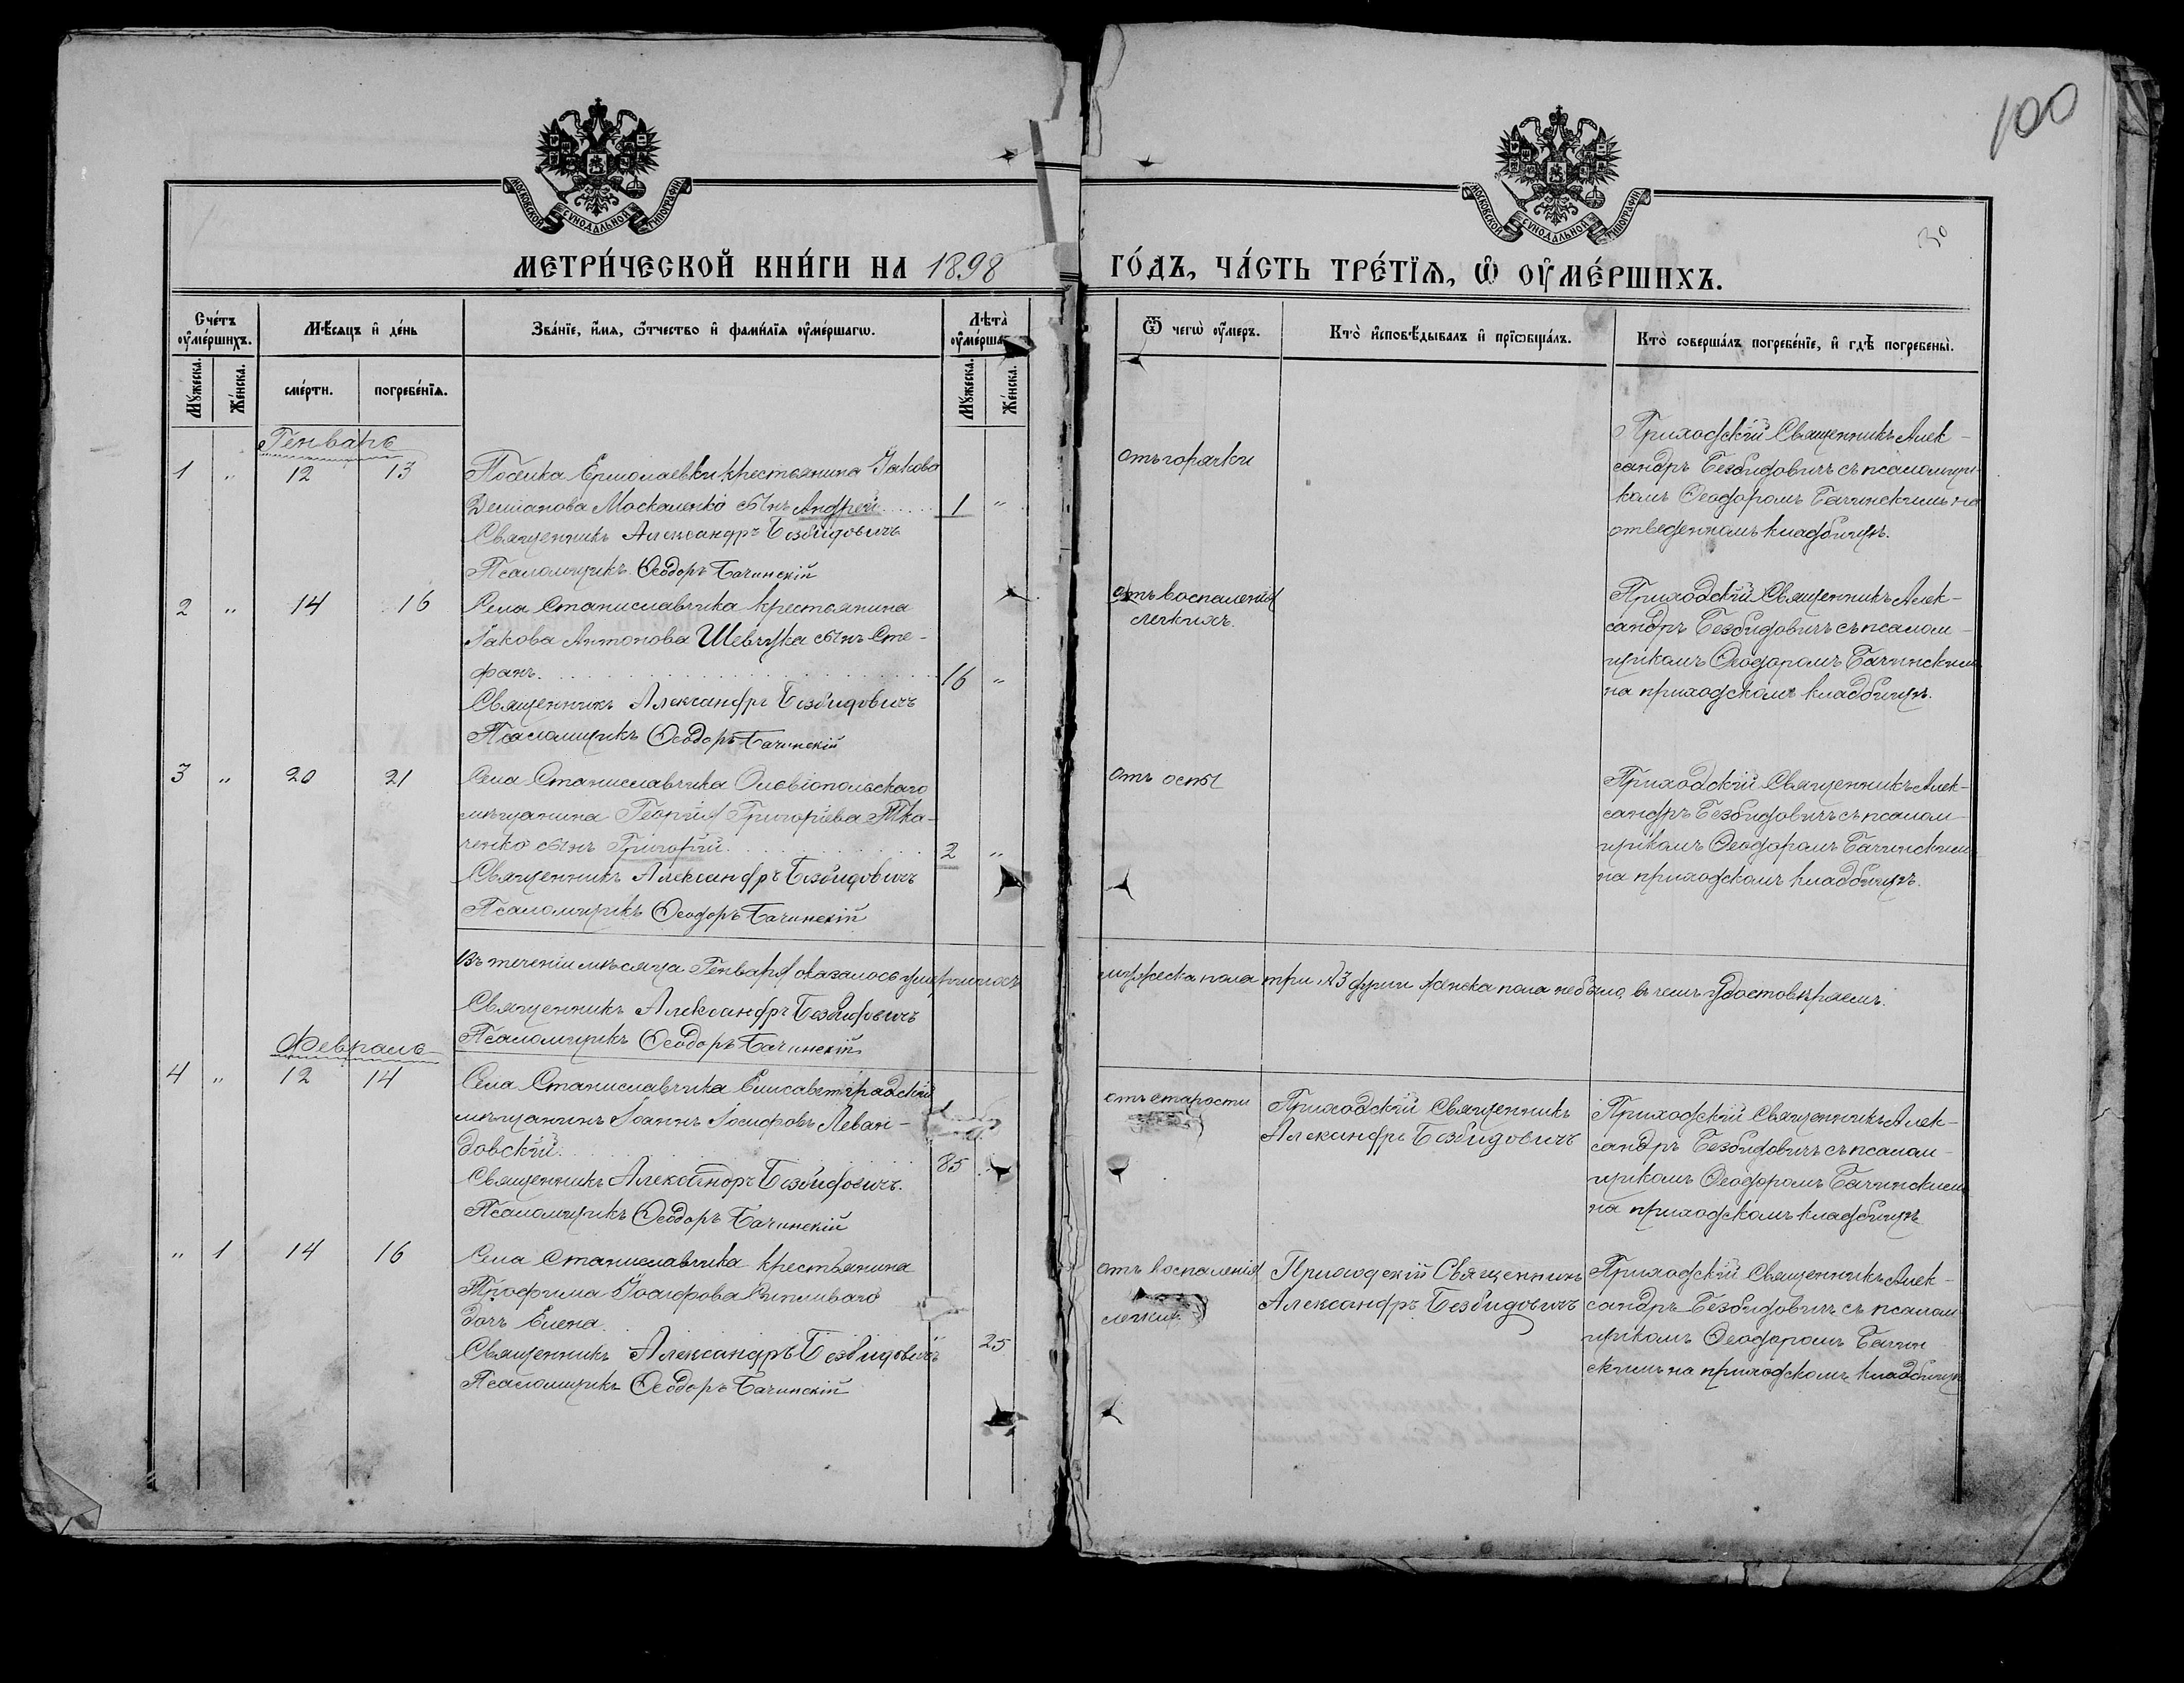 100
30
МОСКОВСКОЙ СѴНОДАЛЬНОЙ ТИПОГРАФІИ
МОСКОВСКОЙ СѴНОДАЛЬНОЙ ТИПОГРАФІИ
МЕТРИ́ЧЕСКОЙ КНИ́ГИ НА 1898 ГО́ДЪ, ЧА́СТЬ ТРЕ́ТЇѦ, Ѡ҆ ОУ҆МЕ́РШИХЪ.
Сче́тъ оу҆ме́ршихъ.
Мѣ́сяцъ и҆ де́нь
Зва́нїе, и҆́мѧ, ѻ҆́тчество и҆ фами́лїѧ оу҆ме́ршагѡ.
Лѣта̀ оу҆ме́рша
Ѿ чегѡ̀ оу҆́меръ.
Кто̀ и҆сповѣ́дывалъ и҆ прїѡбща́лъ.
Кто̀ соверша́лъ погребе́нїе, и҆ гдѣ̀ погребены̀.
Мꙋ́жеска.
Же́нска.
сме́рти.
погребе́нїѧ.
Мꙋ́жеска.
Же́нска.
Генварь
1 " 12 13 Поселка Ермолаевки крестьянина Іакова
Демианова Москаленко сынъ Андрей 1 "
Священникъ Александръ Безбидовичъ
Псаломщикъ Ѳеодоръ Бачинскій
отъ горячки
Приходскій Священникъ Алек-
сандръ Безбидовичъ съ псаломщи-
комъ Ѳеодоромъ Бачинскимъ на
отведенномъ кладбищѣ.
2 " 14 16 Села Станиславчика крестьянина
Іакова Антонова Шевчука сынъ Сте-
фанъ. 16 "
Священникъ Александръ Безбидовичъ
Псаломщикъ Ѳеодоръ Бачинскій
отъ воспаленія
легкихъ.
Приходскій Священникъ Алек-
сандръ Безбидовичъ съ псалом-
щикомъ Ѳеодоромъ Бачинскимъ
на приходскомъ кладбищѣ.
3 " 20 21 Села Станиславчика Ольвіопольскаго
мѣщанина Георгія Григоріева Тка-
ченко сынъ Григорій. 2 "
Священникъ Александръ Безбидовичъ
Псаломщикъ Ѳеодоръ Бачинскій
отъ оспы
Приходскій Священникъ Алек-
сандръ Безбидовичъ съ псалом-
щикомъ Ѳеодоромъ Бачинскимъ
на приходскомъ кладбищѣ.
Въ теченіи мѣсяца Генваря оказалось умершихъ мужеска пола три, женска пола не было, въ чемъ удостовѣряемъ.
Священникъ Александръ Безбидовичъ
Псаломщикъ Ѳеодоръ Бачинскій
Февраль
4 " 12 14 Села Станиславчика Елисаветградскій
мѣщанинъ Іоаннъ Іосифовъ Леван-
довскій. 85
Священникъ Александръ Безбидовичъ.
Псаломщикъ Ѳеодоръ Бачинскій
отъ старости
Приходскій Священникъ
Александръ Безбидовичъ
Приходскій Священникъ Алек-
сандръ Безбидовичъ съ псалом-
щикомъ Ѳеодоромъ Бачинскимъ
на приходскомъ кладбищѣ
" 1 14 16 Села Станиславчика крестьянина
Трофима Іосифова
дочь Елена. 25
Священникъ Александръ Безбидовичъ
Псаломщикъ Ѳеодоръ Бачинскій
отъ воспаленія
легкихъ
Приходскій Священникъ
Александръ Безбидовичъ
Приходскій Священникъ Алек-
сандръ Безбидовичъ съ псалом-
щикомъ Ѳеодоромъ Бачин
скимъ на приходскомъ кладбищѣ